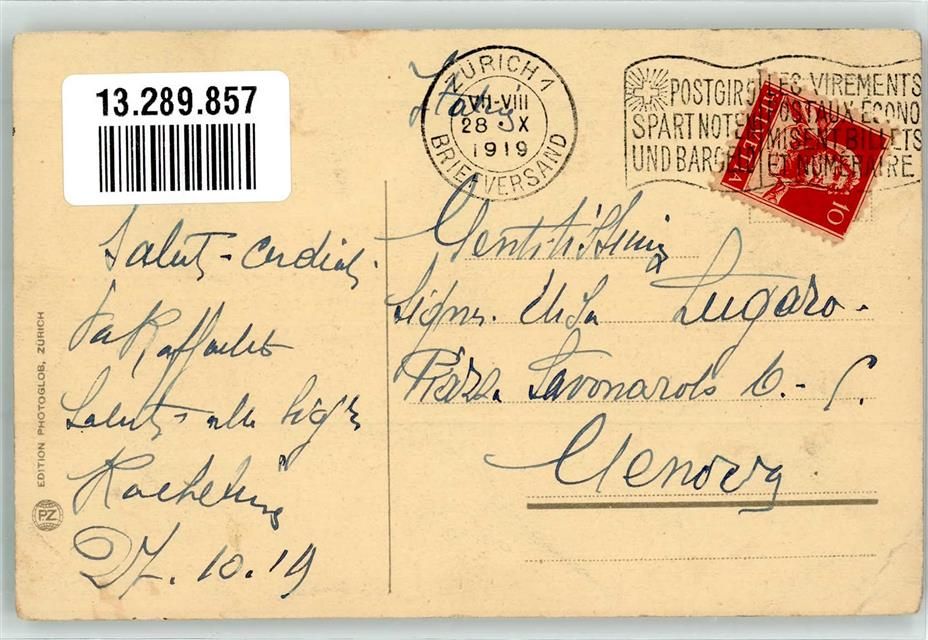 13.289.857
Italie
ZÜRICH 1
VII-VIII
28 X
1919
BRIEFVERSAND
POSTGIRO
SPART NOTEN
UND BARGELD
LES VIREMENTS
POSTAUX ÉCONO
MISENT BILLETS
ET NUMÉRAIRE
HELVETIA
10
Saluti cordiali
da Raffaele
Saluti alla Sigra
27.10.19
Gentilissima
Signa. Elisa Lugaro.
Piazza Savonarola 6-5
Genova
EDITION PHOTOGLOB, ZÜRICH
PZ